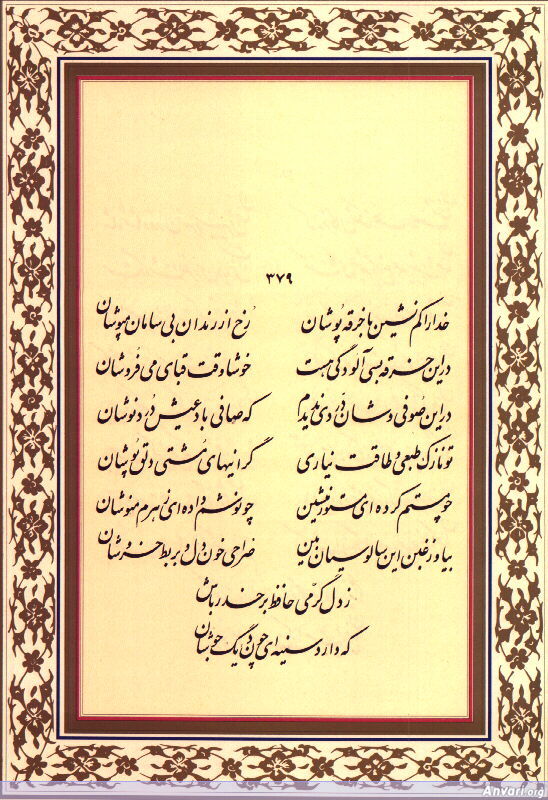 ۳۷۹
خدا را کم نشین با خرقه پوشان رخ از رندان بی سامان مپوشان
در این خرقه بسی آلودگی هست خوشا وقت قبای می فروشان
در این صوفی وشان دردی ندیدم که صافی باد عیش دردنوشان
تو نازک طبعی و طاقت نیاری گرانیهای مشتی دلق پوشان
چو مستم کرده ای مستور منشین چو نوشم داده ای زهرم منوشان
بیا وز غبن این سالوسیان بین صراحی خون دل و بربط خروشان
ز دل گرمی حافظ بر حذر باش
که دارد سینه ای چون دیگ جوشان
Anvari.org